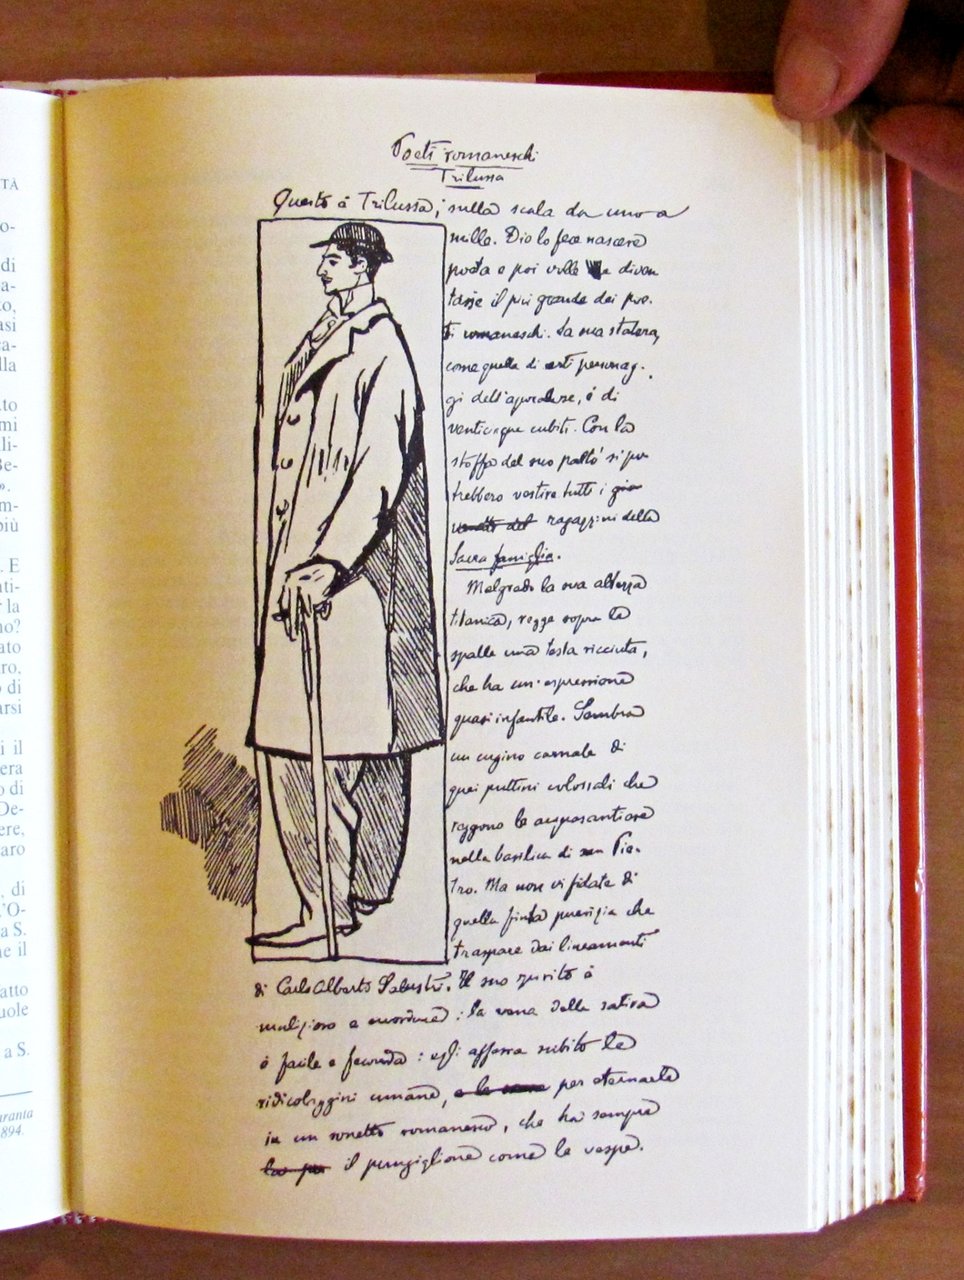 TÀ
o-
di
a-
to,
asi
ca-
lla
to
mi
li-
Be-
».
m-
più
. E
ti-
r la
no?
ato
ro,
o di
arsi
i il
era
o di
De-
ere,
aro
, di
l'O-
a S.
e il
atto
uole
a S.
aranta
894.
Poeti romaneschi
Trilussa
Questo è Trilussa, sulla scala da uno a
mille. Dio lo fece nascere
poeta e poi volle che diven
tasse il più grande dei poe-
ti romaneschi. La sua statura,
come quella di certi personag-
gi dell'apocalisse, è di
venticinque cubiti. Con la
stoffa del suo paltò si po
trebbero vestire tutti i
ragazzini della
Sacra famiglia.
Malgrado la sua altezza
titanica, regge sopra le
spalle una testa ricciuta,
che ha un'espressione
quasi infantile. Sembra
un cugino carnale di
quei puttini colossali che
reggono le acquasantiere
nella basilica di san Pie-
tro. Ma non vi fidate di
quella finta puerizia che
traspare dai lineamenti
di Carlo Alberto Salustri. Il suo spirito è
malizioso e mordace: la vena della satira
è facile e feconda: egli afferra subito le
ridicolaggini umane, per eternarle
in un sonetto romanesco, che ha sempre
il pungiglione come le vespe.